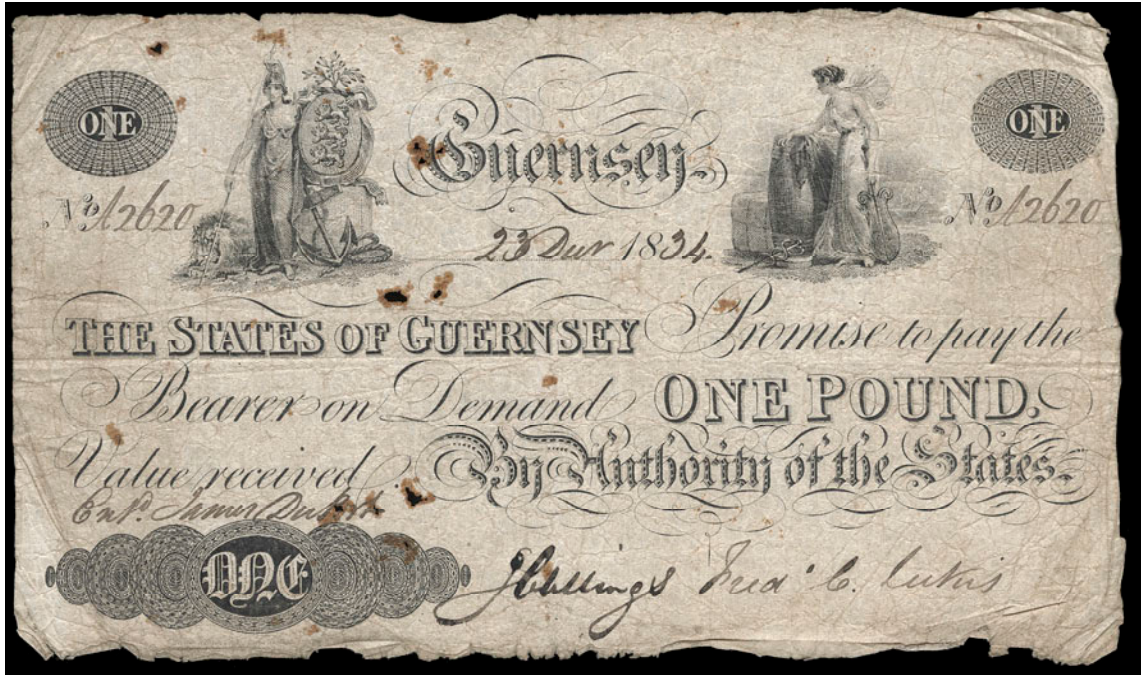 ONE Guernsey. ONE
No. 12620 No. 12620
1834.
THE STATES OF GUERNSEY Promise to pay the
Bearer on Demand ONE POUND.
Value received By Authority of the States.
Ent.d James
ONE J Collings Fred. C. Lukis